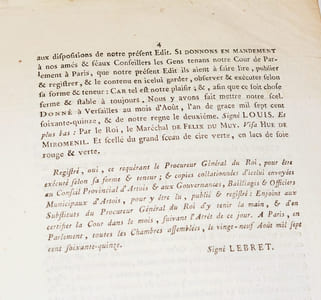 4
aux dispositions de notre présent Edit. SI DONNONS EN MANDEMENT
à nos amés & féaux Conseillers les Gens tenans notre Cour de Par-
lement à Paris, que notre présent Edit ils aient à faire lire, publier
& registrer, & le contenu en icelui garder, observer & exécuter selon
sa forme & teneur: CAR tel est notre plaisir; &, afin que ce soit chose
ferme & stable à toujours, Nous y avons fait mettre notre scel.
DONNÉ à Versailles au mois d'Août, l'an de grace mil sept cent
soixante-quinze, & de notre regne le deuxième. Signé LOUIS. Et
plus bas: Par le Roi, le Maréchal DE FELIX DU MUY. Visa HUE DE
MIROMENIL. Et scellé du grand sceau de cire verte, en lacs de soie
rouge & verte.
Registré, oui, ce requérant le Procureur Général du Roi, pour être
exécuté selon sa forme & teneur; & copies collationnées d'icelui envoyées
au Conseil Provincial d'Artois & aux Gouvernances, Bailliages & Officiers
Municipaux d'Artois, pour y être lu, publié & registré: Enjoint aux
Substituts du Procureur Général du Roi d'y tenir la main, & d'en
certifier la Cour dans le mois, suivant l'Arrêt de ce jour. A Paris, en
Parlement, toutes les Chambres assemblées, le vingt-neuf Août mil sept
cent soixante-quinze.
Signé LEBRET.